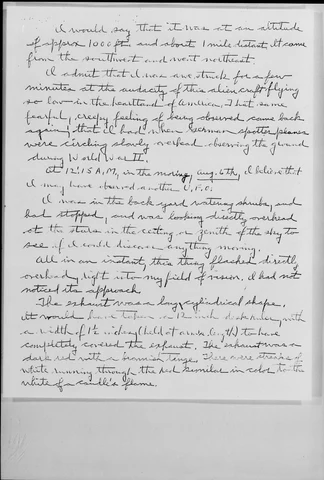 I would say that it was at an altitude
of approx 1000 ft. and about 1 mile distant. It came
from the southwest and went northeast.
I admit that I was awe struck for a few
minutes at the audacity of this alien craft flying
so low in the heartland of America. That same
fearful, creepy feeling of being observed came back
again, that I had when German spotter planes
were circling slowly overhead observing the ground
during World War II.
at 12:15 A.M., in the morning, Aug. 6th, I believe that
I may have observed another U.F.O.
I was in the back yard watering shrubs, and
had stopped, and was looking directly overhead
at the stars in the ceiling or zenith of the sky to
see if I could discover anything moving.
All in an instant, this thing flashed directly
overhead, right into my field of vision. I had not
noticed its approach.
The exhaust was a long cylindrical shape.
It would have taken a 12 inch, with
a width of 1½ inches (held at arms length) to have
completely covered the exhaust. The exhaust was a
dark red with a brownish tinge. There were streaks of
white running through the red similar in color to the
white of a candle's flame.